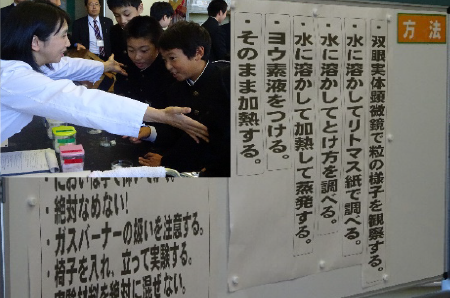 方法
双眼実体顕微鏡で粒の様子を観察する。
水に溶かしてリトマス紙で調べる。
水に溶かしてとけ方を調べる。
水に溶かして加熱して蒸発する。
ヨウ素液をつける。
そのまま加熱する。
・絶対なめない!
・ガスバーナーの扱いを注意する。
・椅子を入れ、立って実験する。